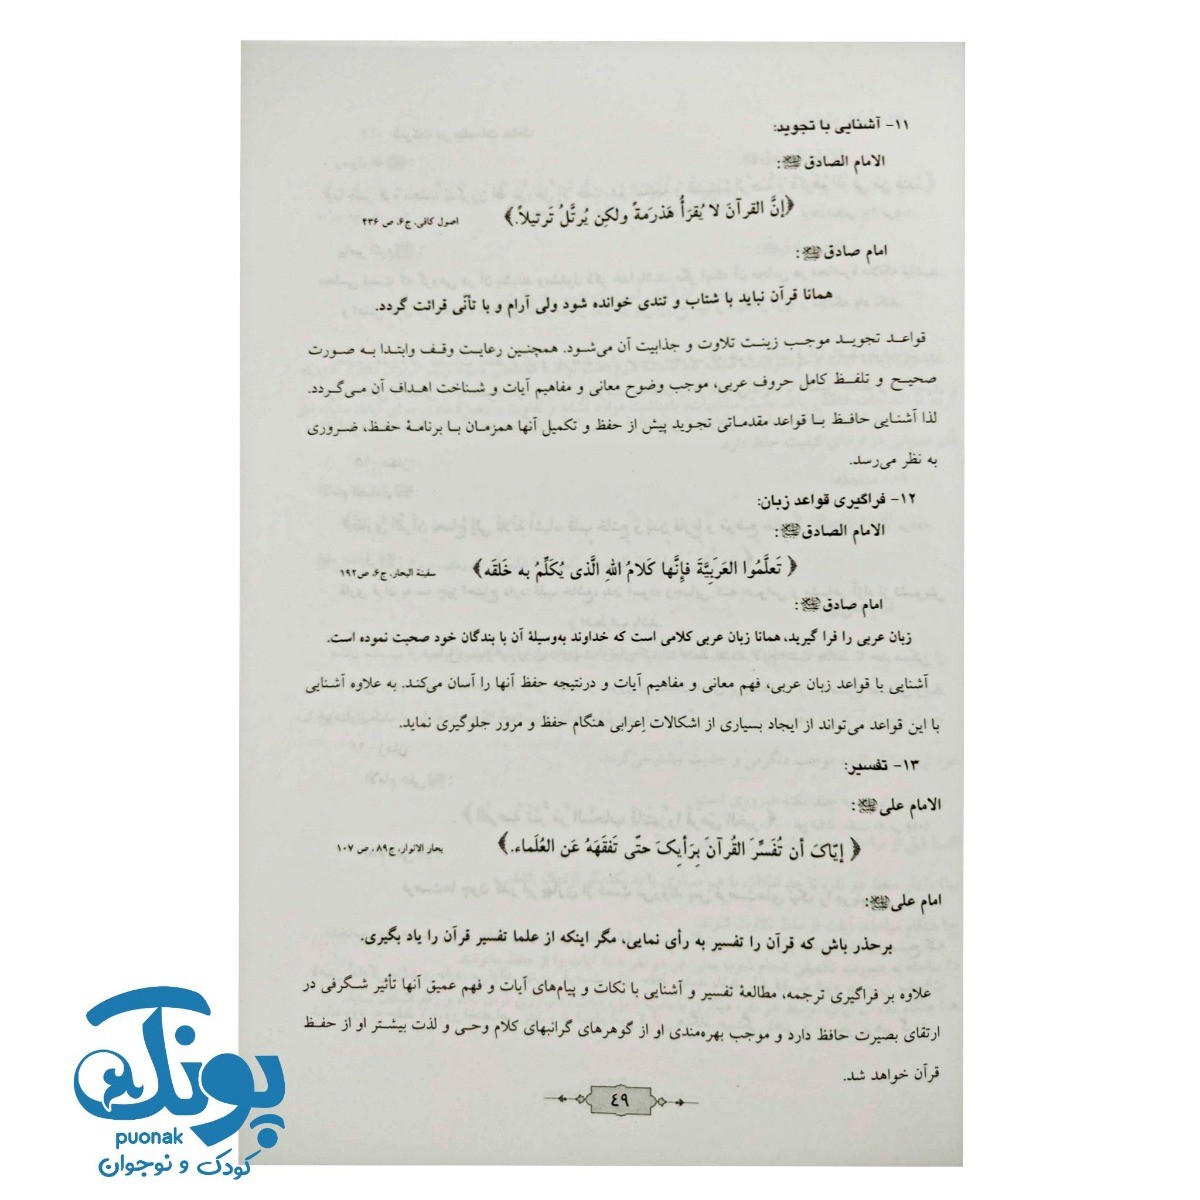 ۱۱- آشنایی با تجوید:
الامام الصادق علیه السلام:
﴿إنَّ القرآنَ لا يُقرَأُ هَذرَمَةً ولكِن يُرتَّلُ تَرتيلاً.﴾ اصول کافی، ج۶، ص ۴۳۶
امام صادق علیه السلام:
همانا قرآن نباید با شتاب و تندی خوانده شود ولی آرام و با تأنّی قرائت گردد.
قواعد تجوید موجب زینت تلاوت و جذابیت آن می‌شود. همچنین رعایت وقف وابتدا به صورت
صحیح و تلفظ کامل حروف عربی، موجب وضوح معانی و مفاهیم آیات و شناخت اهداف آن می‌گردد.
لذا آشنایی حافظ با قواعد مقدماتی تجوید پیش از حفظ و تکمیل آنها همزمان با برنامهٔ حفظ، ضروری
به نظر می‌رسد.
۱۲- فراگیری قواعد زبان:
الامام الصادق علیه السلام:
﴿ تَعلَّمُوا العَرَبِیَّةَ فإِنَّها کَلامُ اللهِ الَّذی یُکَلِّمُ به خَلقَه ﴾ سفینة البحار، ج۶، ص۱۹۲
امام صادق علیه السلام:
زبان عربی را فرا گیرید، همانا زبان عربی کلامی است که خداوند به‌وسیلهٔ آن با بندگان خود صحبت نموده است.
آشنایی با قواعد زبان عربی، فهم معانی و مفاهیم آیات و درنتیجه حفظ آنها را آسان می‌کند. به علاوه آشنایی
با این قواعد می‌تواند از ایجاد بسیاری از اشکالات اِعرابی هنگام حفظ و مرور جلوگیری نماید.
۱۳- تفسیر:
الامام علی علیه السلام:
﴿ إیّاکَ أن تُفَسِّرَ القُرآنَ بِرَأیِکَ حتّی تَفَقَهَهُ عَن العُلَماء. ﴾ بحار الانوار، ج۸۹، ص ۱۰۷
امام علی علیه السلام:
برحذر باش که قرآن را تفسیر به رأی نمایی، مگر اینکه از علما تفسیر قرآن را یاد بگیری.
علاوه بر فراگیری ترجمه، مطالعهٔ تفسیر و آشنایی با نکات و پیام‌های آیات و فهم عمیق آنها تأثیر شگرفی در
ارتقای بصیرت حافظ دارد و موجب بهره‌مندی او از گوهرهای گرانبهای کلام وحی و لذت بیشتر او از حفظ
قرآن خواهد شد.
۴۹
پونک
puonak
کودک و نوجوان